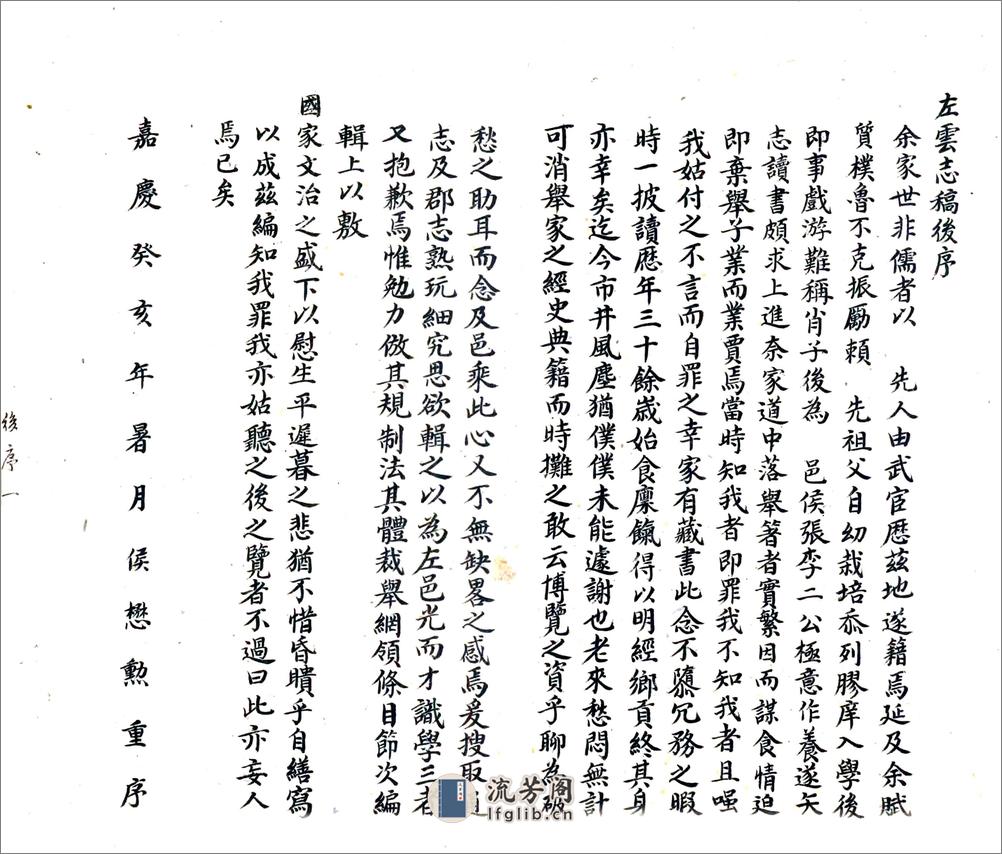 左雲志稿後序
余家世非儒者以 先人由武宦歷茲地遂籍焉延及余賦
質樸魯不克振勵賴 先祖父自幼栽培忝列膠庠入學後
即事戲游難稱肖子後為 邑侯張李二公極意作養遂矢
志讀書頗求上進奈家道中落舉著者實繁因而謀食情迫
即棄舉子業而業賈焉當時知我者即罪我不知我者且嗤
我姑付之不言而自罪之幸家有藏書此念不隳冗務之暇
時一披讀歷年三十餘歲始食廩餼得以明經鄉貢終其身
亦幸矣迄今市井風塵猶僕僕未能遽謝也老來愁悶無計
可消舉家之經史典籍而時攤之敢云博覽之資乎聊為破
愁之助耳而念及邑乘此心又不無缺畧之感焉爰搜取
志及郡志熟玩細究思欲輯之以為左邑光而才識學三者
又抱歉焉惟勉力倣其規制法其體裁舉網領條目節次編
輯上以敷
國家文治之盛下以慰生平遲暮之悲猶不惜昏瞶乎自繕寫
以成茲編知我罪我亦姑聽之後之覽者不過曰此亦妄人
焉已矣
嘉慶癸亥年暑月侯懋勳重序
後序一
流芳阁
lfglib.cn